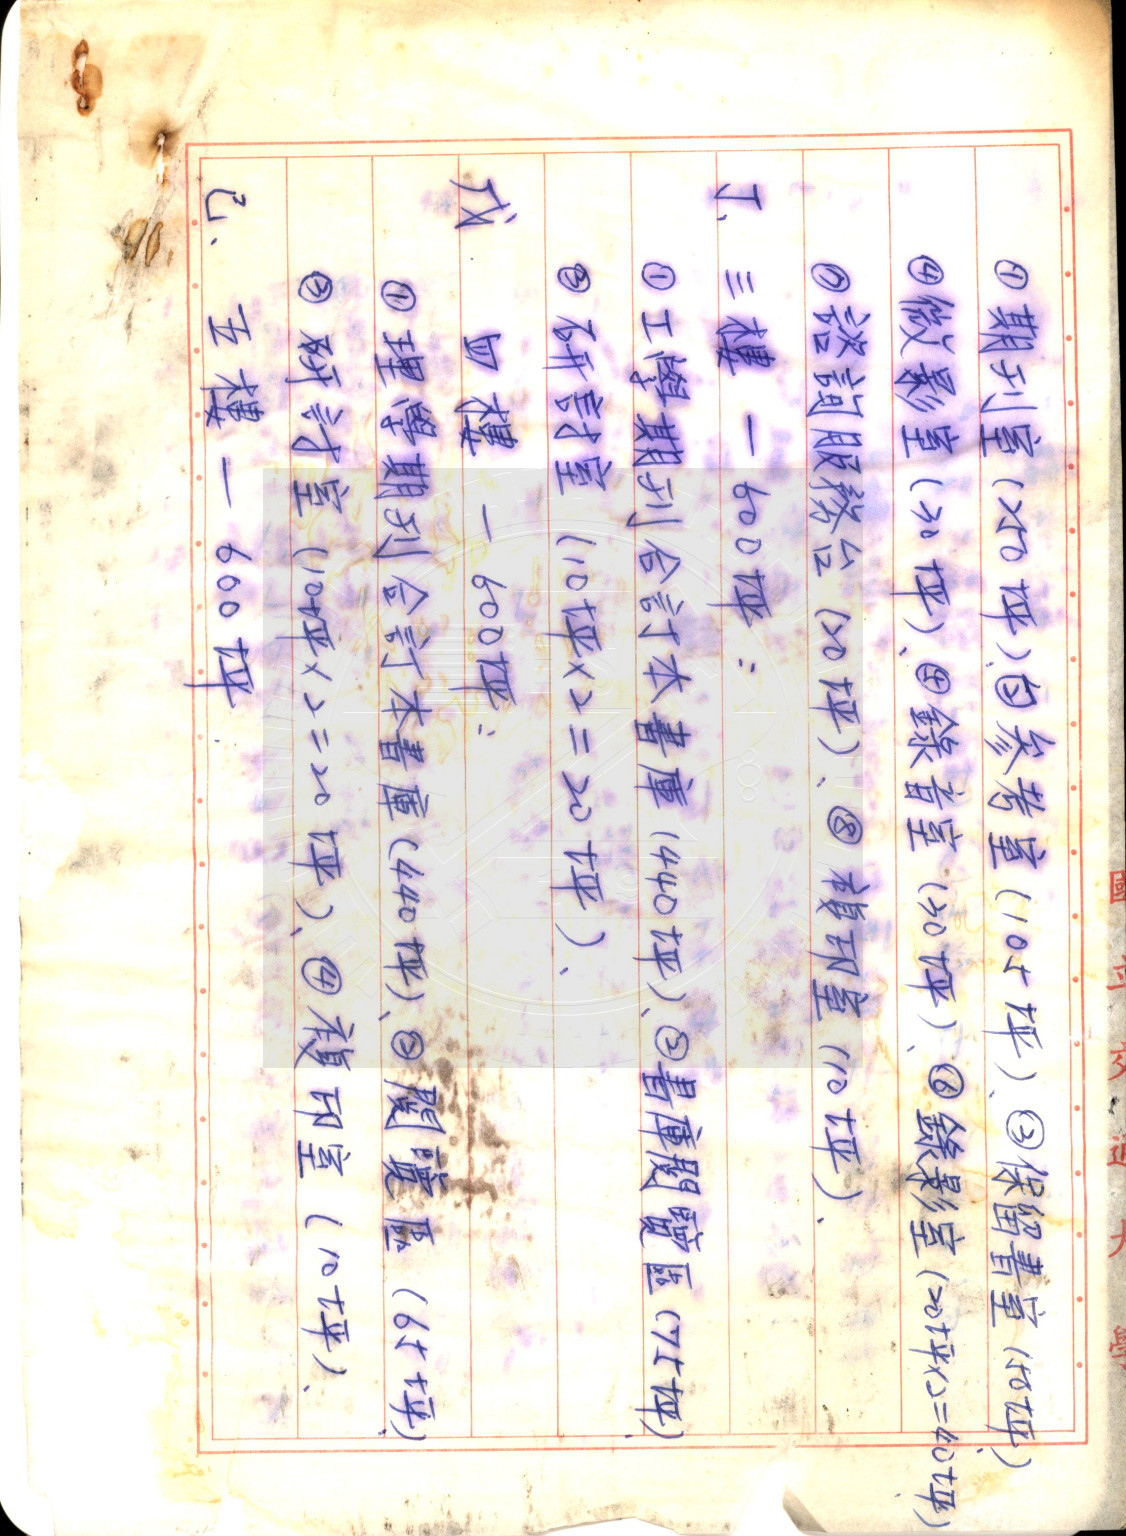 ①期刊室(250坪)、②參考室(105坪)、③保留書室(50坪)、
④微影室(20坪)、④錄音室(30坪)、⑥錄影室(20坪×2=40坪)
⑦諮詢服務台(20坪)、⑧複印室(10坪)、
丁、三樓—600坪:
①工學期刊合訂本書庫(440坪)、②書庫閱覽區(75坪)、
③研討室(10坪×2=20坪)、
戊 四樓—600坪:
①理學期刊合訂本書庫(440坪)、②閱覽區(65坪)、
③研討室(10坪×2=20坪)、④複印室(10坪)、
己、五樓—600坪
國立交通大學